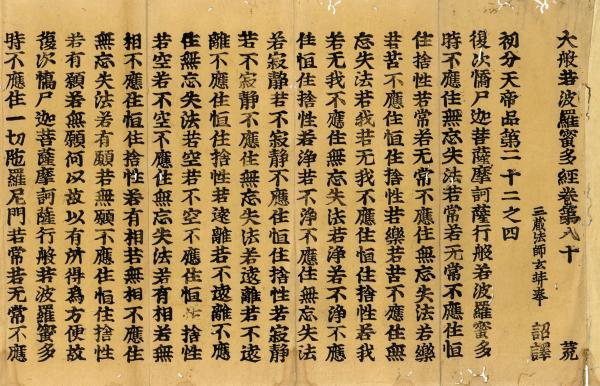 大般若波羅蜜多經卷第八十 荒
三藏法師玄奘奉 詔譯
初分天帝品第二十二之四
復次憍尸迦菩薩摩訶薩行般若波羅蜜多
時不應住無忘失法若常若无常不應住恒
住捨性若常若无常不應住無忘失法若樂
若苦不應住恒住捨性若樂若苦不應住無
忘失法若我若无我不應住恒住捨性若我
若无我不應住無忘失法若淨若不淨不應
住恒住捨性若淨若不淨不應住無忘失法
若寂靜若不寂靜不應住恒住捨性若寂靜
若不寂靜不應住無忘失法若遠離若不遠
離不應住恒住捨性若遠離若不遠離不應
住無忘失法若空若不空不應住恒住捨性
若空若不空不應住無忘失法若有相若無
相不應住恒住捨性若有相若無相不應住
無忘失法若有願若無願不應住恒住捨性
若有願若無願何以故以有所得為方便故
復次憍尸迦菩薩摩訶薩行般若波羅蜜多
時不應住一切陁羅尼門若常若无常不應